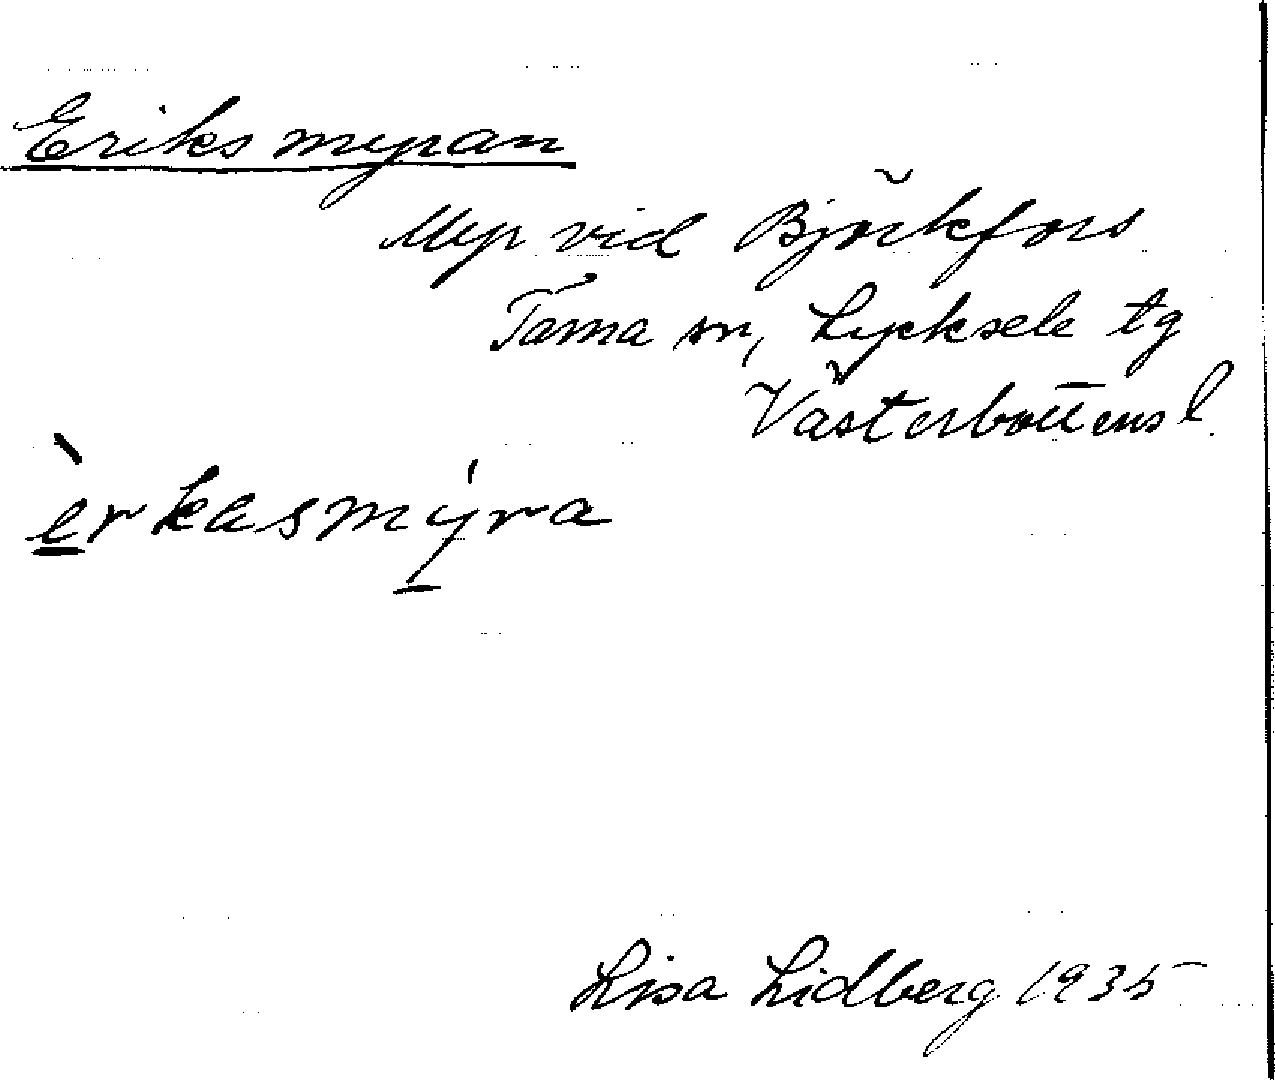 Eriksmyran
Myr vid Björkfors
Tärna sn, Lycksele tg
Västerbottens l.
èrkasmýra
Lisa Lidberg 1935